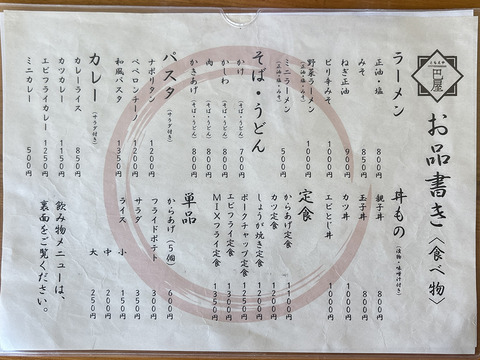 巴屋
お品書き〈食べ物〉
ラーメン
正油・塩 800円
みそ 850円
ねぎ正油 900円
ピリ辛みそ 1000円
野菜ラーメン (正油・塩・みそ) 1000円
ミニラーメン (正油・塩・みそ) 500円
そば・うどん
かけ (そば・うどん) 700円
かしわ (そば・うどん) 800円
肉 (そば・うどん) 800円
かきあげ (そば・うどん) 800円
パスタ (サラダ付き)
ナポリタン 1200円
ペペロンチーノ 1200円
和風パスタ 1350円
カレー (サラダ付き)
カレーライス 850円
カツカレー 1150円
エビフライカレー 1250円
ミニカレー 500円
丼もの (漬物・味噌汁付き)
親子丼 800円
玉子丼 800円
カツ丼 1000円
エビとじ丼 1000円
定食
からあげ定食 1100円
カツ定食 1200円
しょうが焼き定食 1200円
ポークチャップ定食 1250円
エビフライ定食 1300円
MIXフライ定食 1350円
単品
からあげ(5個) 600円
フライドポテト 300円
サラダ 350円
ライス 小 150円
中 200円
大 250円
飲み物メニューは、
裏面をご覧ください。